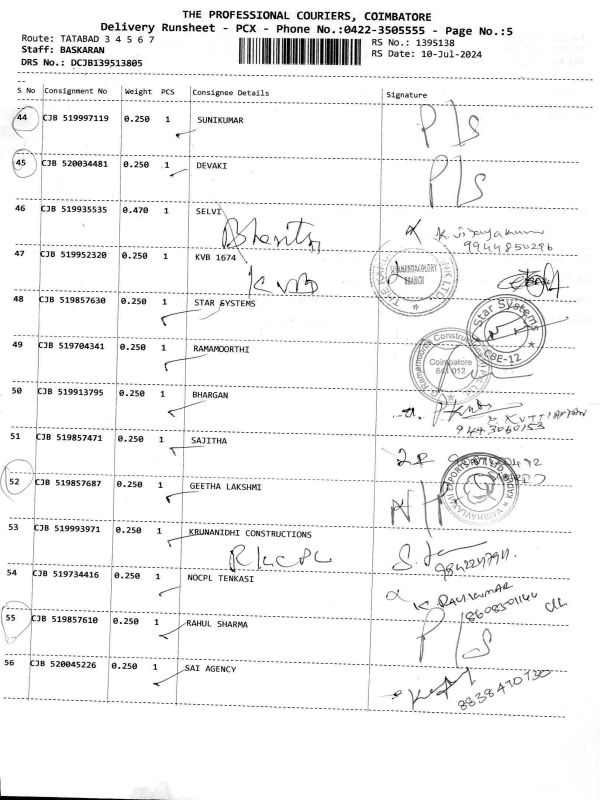 THE PROFESSIONAL COURIERS, COIMBATORE
Delivery Runsheet - PCX - Phone No.:0422-3505555 - Page No.:5
Route: TATABAD 3 4 5 6 7
RS No.: 1395138
Staff: BASKARAN
RS Date: 10-Jul-2024
DRS No.: DCJB139513805
S No Consignment No Weight PCS Consignee Details Signature
44 CJB 519997119 0.250 1 SUNIKUMAR P/S
45 CJB 520034481 0.250 1 DEVAKI P/S
46 CJB 519935535 0.470 1 SELVI
9944850296
47 CJB 519952320 0.250 1 KVB 1674
KVB
BRANCH
48 CJB 519857630 0.250 1 STAR SYSTEMS
Star Systems
CBE-12
49 CJB 519704341 0.250 1 RAMAMOORTHI
Coimbatore
641 012
50 CJB 519913795 0.250 1 BHARGAN
9443060153
51 CJB 519857471 0.250 1 SAJITHA
52 CJB 519857687 0.250 1 GEETHA LAKSHMI
53 CJB 519993971 0.250 1 KRUNANIDHI CONSTRUCTIONS
54 CJB 519734416 0.250 1 NOCPL TENKASI
K. RAVIKUMAR
55 CJB 519857610 0.250 1 RAHUL SHARMA P/S
56 CJB 520045226 0.250 1 SAI AGENCY
8838470730